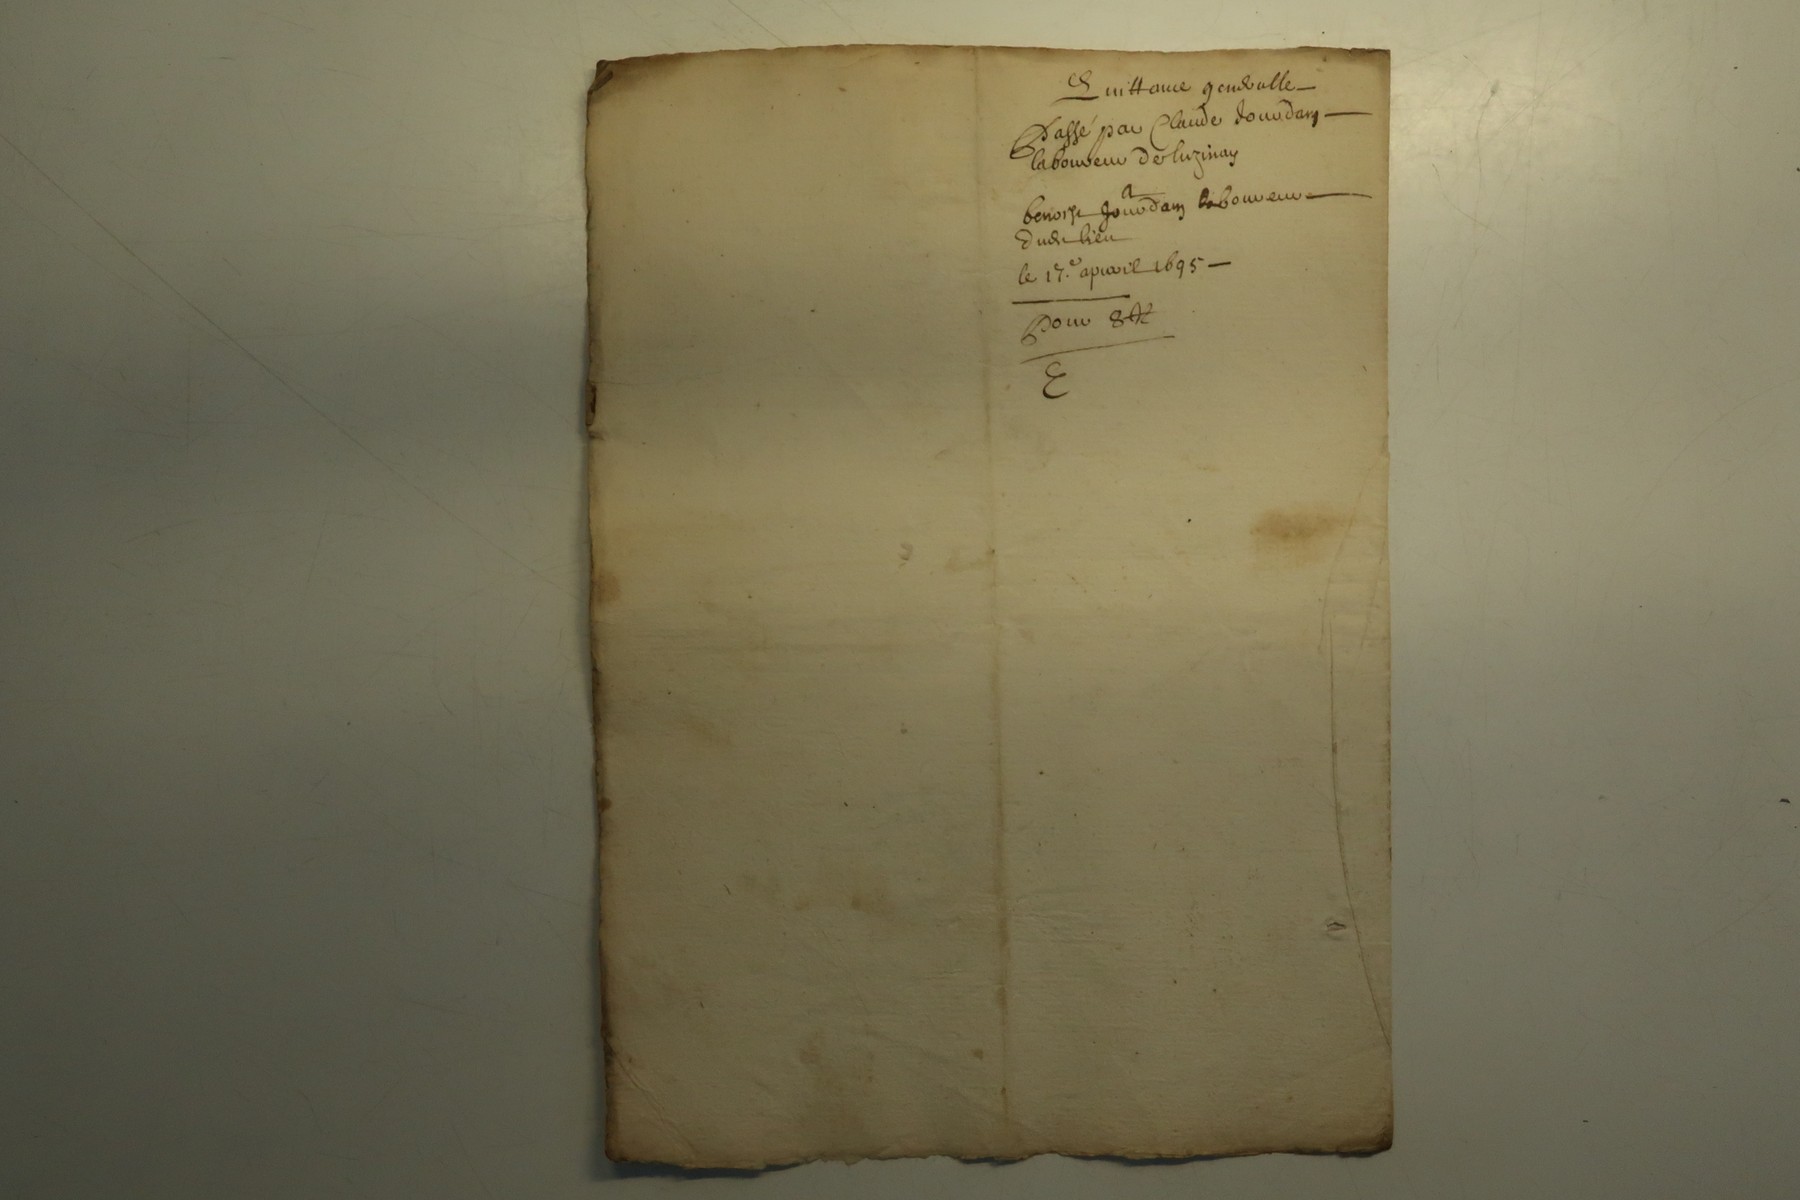 Quittance generalle
Passé par Claude Jourdan
laboureur de luzinay
a
benoist Jourdan laboureur
dudt lieu
le 17.e apvril 1695
Pour 8 ₶
E